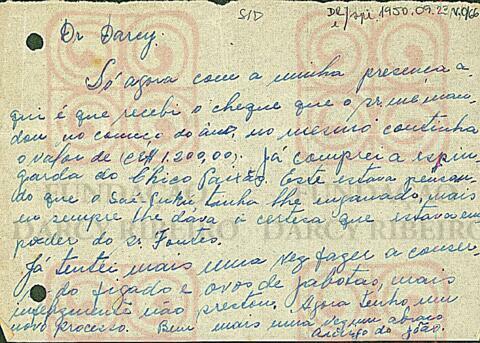 S/D
DR/spi 1950.09.23 N.0/66
Dr Darcy.
Só agora com a minha presença a-
qui é que recebi o cheque que o sr. me man-
dou no começo do ano, no mesmo continha
o valor de (Cr$ 1.200,00). Já comprei a espin-
garda do Chico Este estava pensan-
do que o tinha lhe enganado, mais
eu sempre lhe dava a certeza que estava em
poder do sr. Fontes.
Já tentei mais uma vez fazer a conser-
do figado e ovos de jabotas, mais
não prestou. Agora tenho um
novo processo. Bem mais uma vez um abraço
Amigo do João.
FUNDAÇÃO
DARCY RIBEIRO
DARCY RIBEIRO